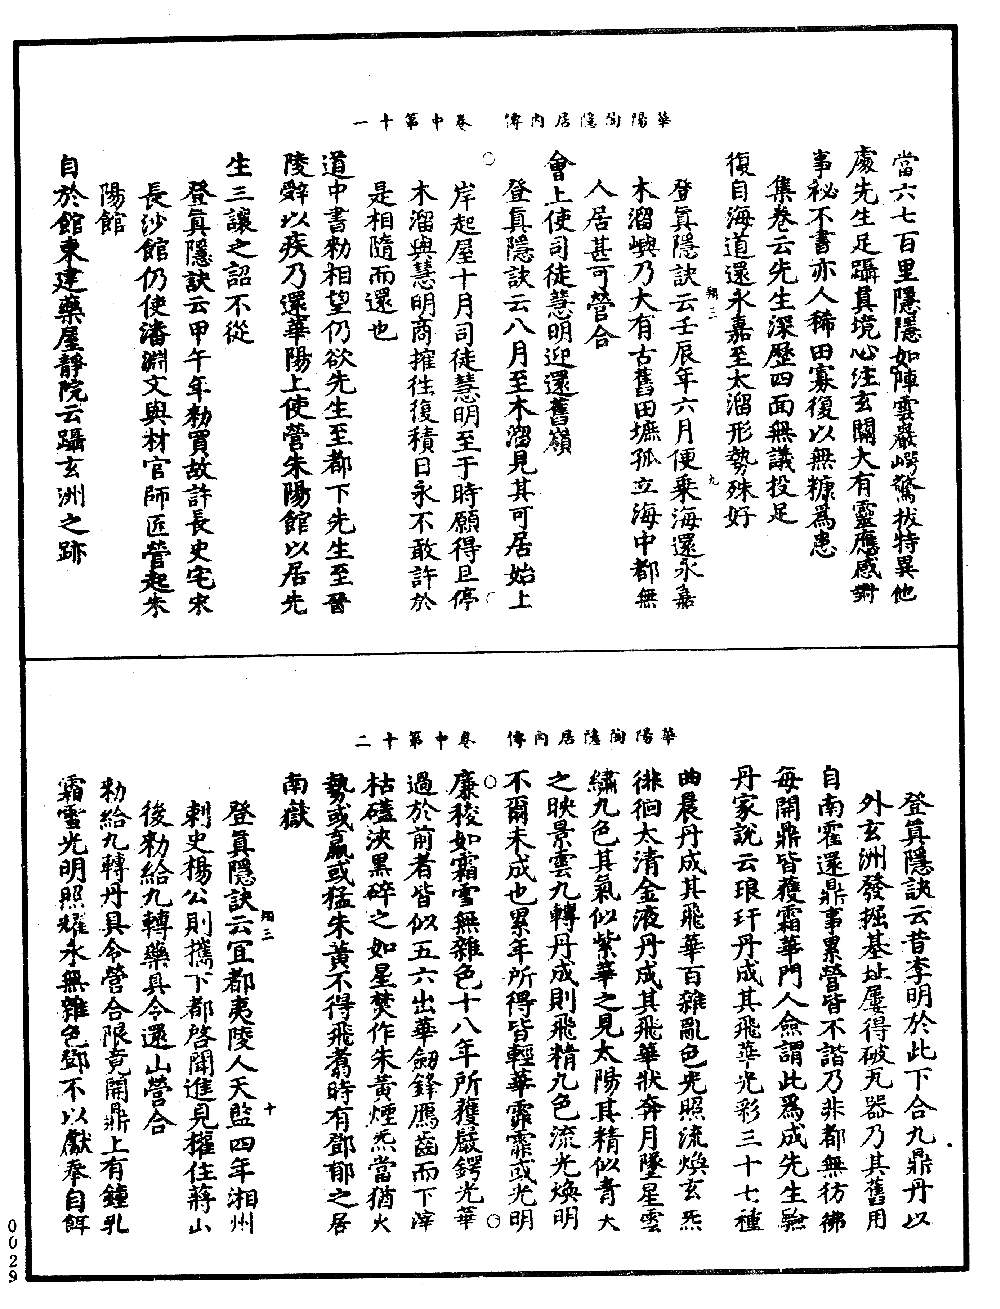 華陽陶隱居內傳 卷中第十一
當六七百里隱隱如陣雲巖崿驚拔特異他
處先生足躡真境心注玄關大有靈應感對
事祕不書亦人稀田寡復以無糠為患
集卷云先生深歷四面無議投足
復自海道還永嘉至太溜形勢殊好
登真隱訣云壬辰年六月便乗海還永嘉
木溜嶼乃大有古舊田墌孤立海中都無
人居甚可營合
會上使司徒慧明迎還舊嶺
登真隱訣云八月至木溜見其可居始上
岸起屋十月司徒慧明至于時願得且停
木溜與慧明商搉往復積日永不敢許於
是相隨而還也
道中書勑相望仍欲先生至都下先生至晉
陵辤以疾乃還華陽上使營朱陽館以居先
生三讓之詔不從
登真隱訣云甲午年勑買故許長史宅宋
長沙館仍使潘淵文與材官師匠營起朱
陽館
自於館東建藥屋靜院云躡玄洲之跡
翔三
九
華陽陶隱居內傳 卷中第十二
登真隱訣云昔李明於此下合九鼎丹以
外玄洲發掘基址屢得破丸器乃其舊用
自南霍還鼎事累營皆不諧乃非都無彷彿
每開鼎皆獲霜華門人僉謂此為成先生驗
丹家說云琅玕丹成其飛華光彩三十七種
曲晨丹成其飛華百雜亂色光照流煥玄炁
徘徊大清金液丹成其飛華狀奔月墜星雲
繡九色其氣似紫華之見太陽其精似青天
之映景雲九轉丹成則飛精九色流光煥明
不爾未成也累年所得皆輕華霏霏或光明
廉稜如霜雪無雜色十八年所獲嚴鍔光華
過於前者皆似五六出華劒鋒鴈齒而下滓
枯礚浹黑碎之如星焚作朱黃煙炁當猶火
勢或羸或猛朱黃不得飛翥時有鄧郁之居
南嶽
登真隱訣云宜都夷陵人天監四年湘州
刺史楊公則攜下都啓聞進見權住蔣山
後勑給九轉藥具令還山營合
勑給九轉丹具令營合限竟開鼎上有鍾乳
霜雪光明照耀永無雜色鄧不以獻奉自餌
翔三
十
0029